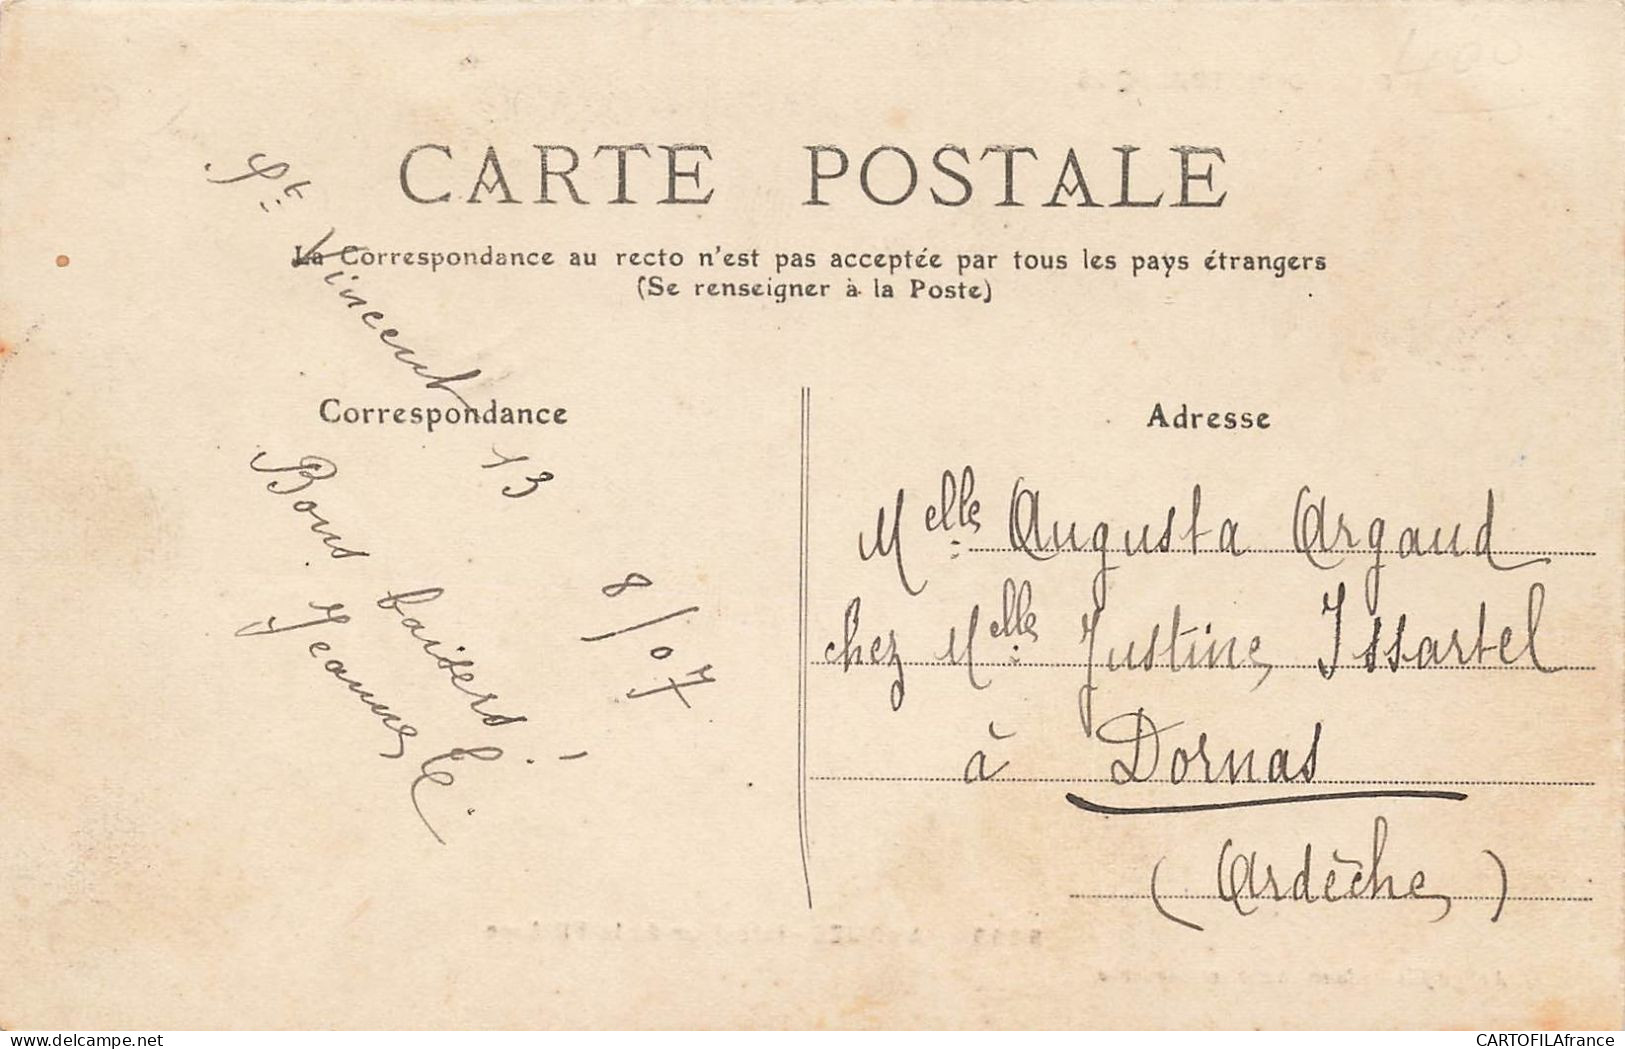 400
CARTE POSTALE
La Correspondance au recto n'est pas acceptée par tous les pays étrangers
(Se renseigner à la Poste)
St. Vincent 13 8/07
Correspondance
Bons baisers.
Jeanne
Adresse
Melle Augusta Argaud
chez Melle Justine Issartel
à Dornas
(Ardèche)
delcampe.net
CARTOFILAfrance